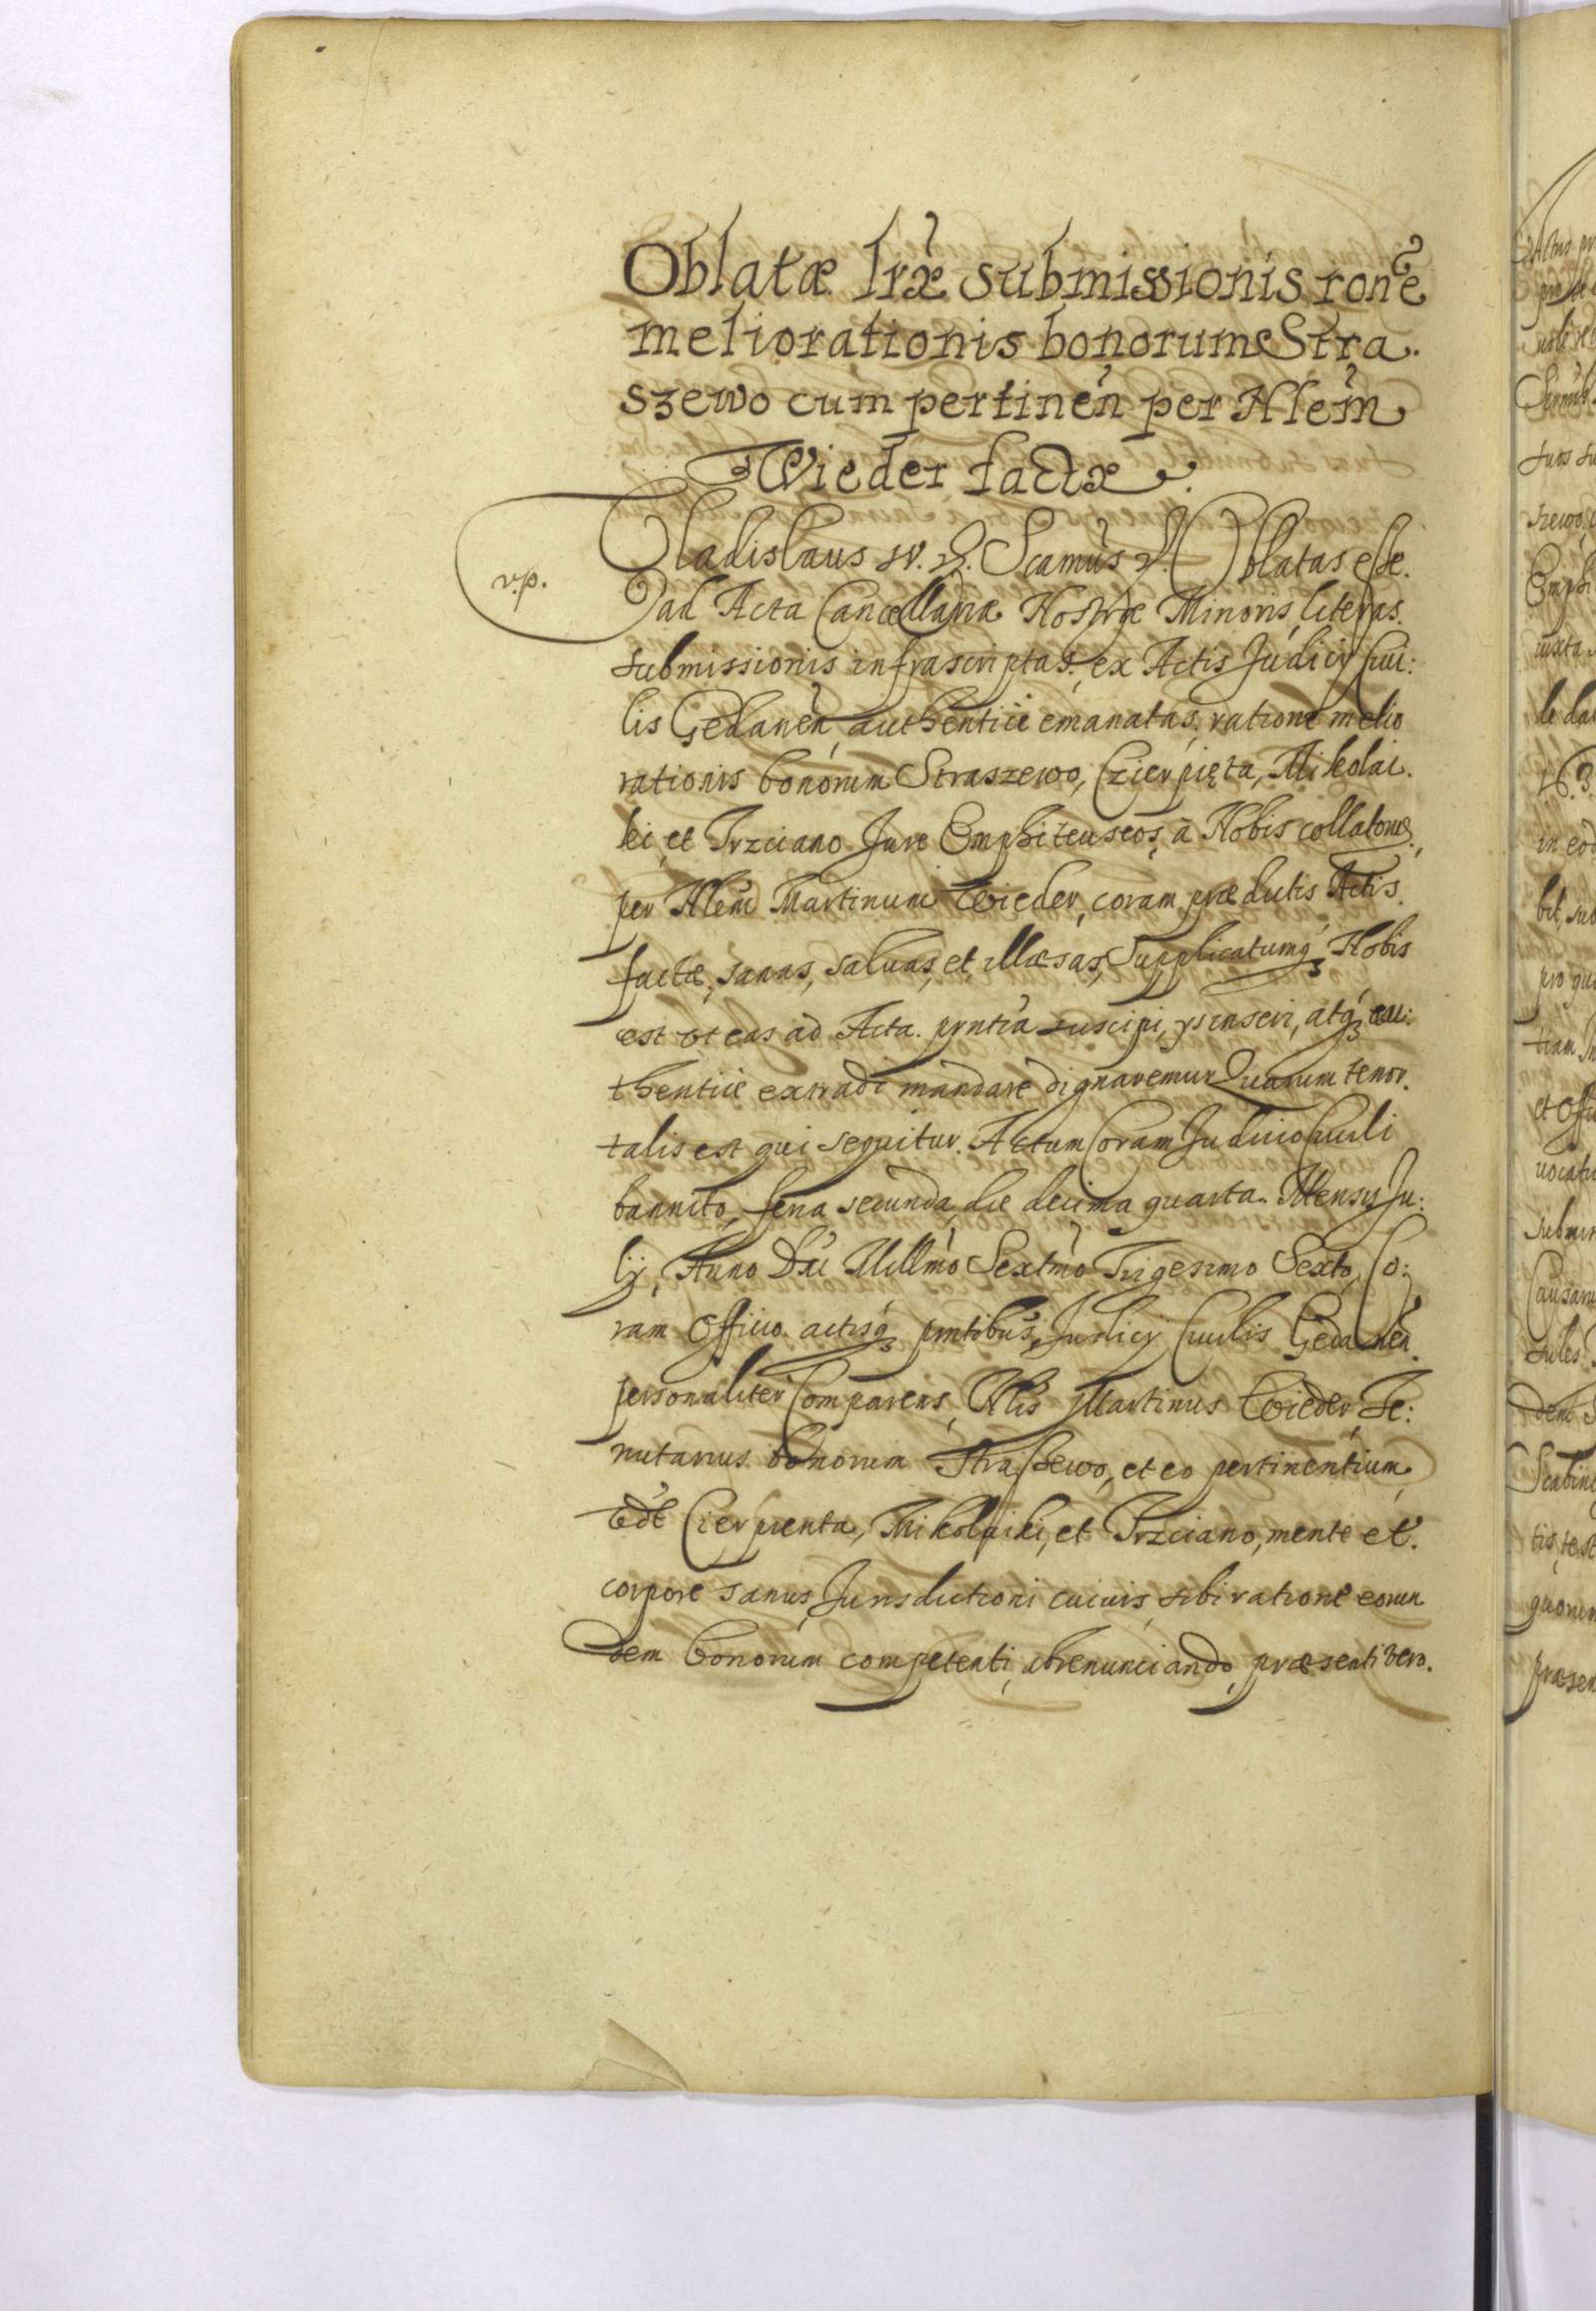 Oblatæ lræ submissionis rone
meliorationis bonorum Stra
szewo cum pertinen per Nlem
Wieder factæ.
v.p.
Vladislaus IV. &. Scamus &. Oblatas esse.
ad Acta Cancellariæ Nostræ Minoris, literas.
submissionis infrascriptas, ex Actis Judicij ciui:
lis Gedanen, authentice emanatas, ratione melio
rationis bonorum Straszewo, Czierpięta, Mikolai.
ki, et Trzciano Jure Emphiteuseos, à Nobis collatorum,
per Nlem Martinum Wieder, coram prædictis Actis.
factæ, sanas, saluas, et illæsas, Supplicatumq Nobis
est vt eas ad Acta. prntia suscipi, ys inseri, atq au:
thentice extradi mandare dignaremur Quarum tenor.
talis est qui sequitur. Actum Coram Judicio Ciuili
bannito, feria secunda, die decima quarta. Mensis Ju:
lij, Anno Dni Millmo Sextmo Trigesimo Sexto, Co:
ram Officio. actisq prntibus, Judicij Ciuilis Gedanen.
personaliter Comparens, Nlis Martinus Wieder Te:
nutarius bonorum Strassewo, et eo pertinentium,
vdt Cierpienta, Mikolaiki, et Trzciano, mente et.
corpore sanus, Jurisdictioni cuiuis, sibi ratione eorun
dem bonorum competenti, abrenunciando, præsenti vero.